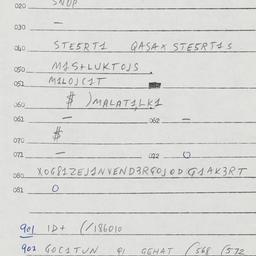 020 SNUP
030 —
040 STE5RT1 QASAX STE5RT1S
050 M1S+LUKTOJS
051 M1LOJC1T
060 $ )MALAT1LK1
061 — 062 —
$
070
071 — 072 O
080 XOG81ZEJ1NVEND3R9OJOD G1AK3RT
081 O
901 ID+ (/186010
902 GOC1TUN 91 GEHAT (568 (572